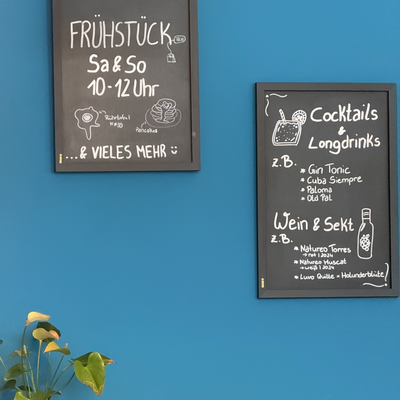 FRÜHSTÜCK
Sa & So
10-12 Uhr
Pancakes
...& VIELES MEHR
Cocktails
&
Longdrinks
z.B.
* Gin Tonic
* Cuba Siempre
* Paloma
* Old Pal
Wein & Sekt
z.B.
* Natureo Torres
→ rot | 2024
* Natureo Muscat
→ weiß | 2024
* Luvo Quitte - Holunderblüte